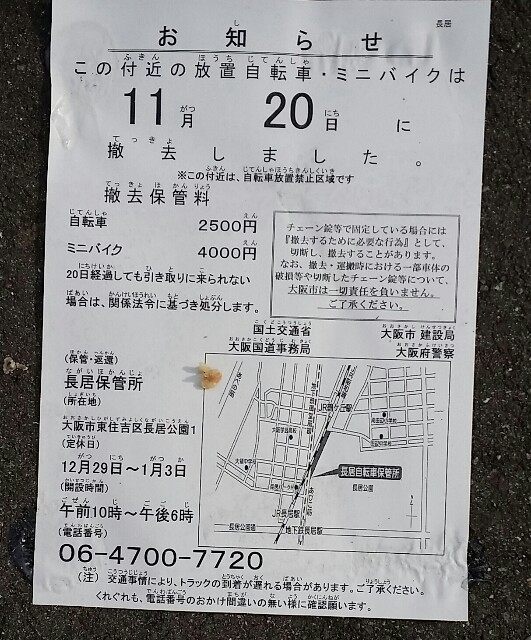 長居
お知らせ
この付近の放置自転車・ミニバイクは
11月 20日に
撤去しました。
※この付近は、自転車放置禁止区域です
撤去保管料
自転車 2500円
ミニバイク 4000円
20日経過しても引き取りに来られない
場合は、関係法令に基づき処分します。
チェーン錠等で固定している場合には
『撤去するために必要な行為』として、
切断し、撤去することがあります。
なお、撤去・運搬時における一部車体の
破損等や切断したチェーン錠等について、
大阪市は一切責任を負いません。
ご了承ください。
国土交通省
大阪国道事務局
大阪市 建設局
大阪府警察
(保管・返還)
長居保管所
(所在地)
大阪市東住吉区長居公園1
(定休日)
12月29日～1月3日
(開設時間)
午前10時～午後6時
(電話番号)
06-4700-7720
JR鶴ケ丘駅
長居自転車保管所
長居公園
JR長居駅
長居公園通
地下鉄長居駅
(注) 交通事情により、トラックの到着が遅れる場合があります。ご了承ください。
くれぐれも、電話番号のおかけ間違いの無い様に確認願います。